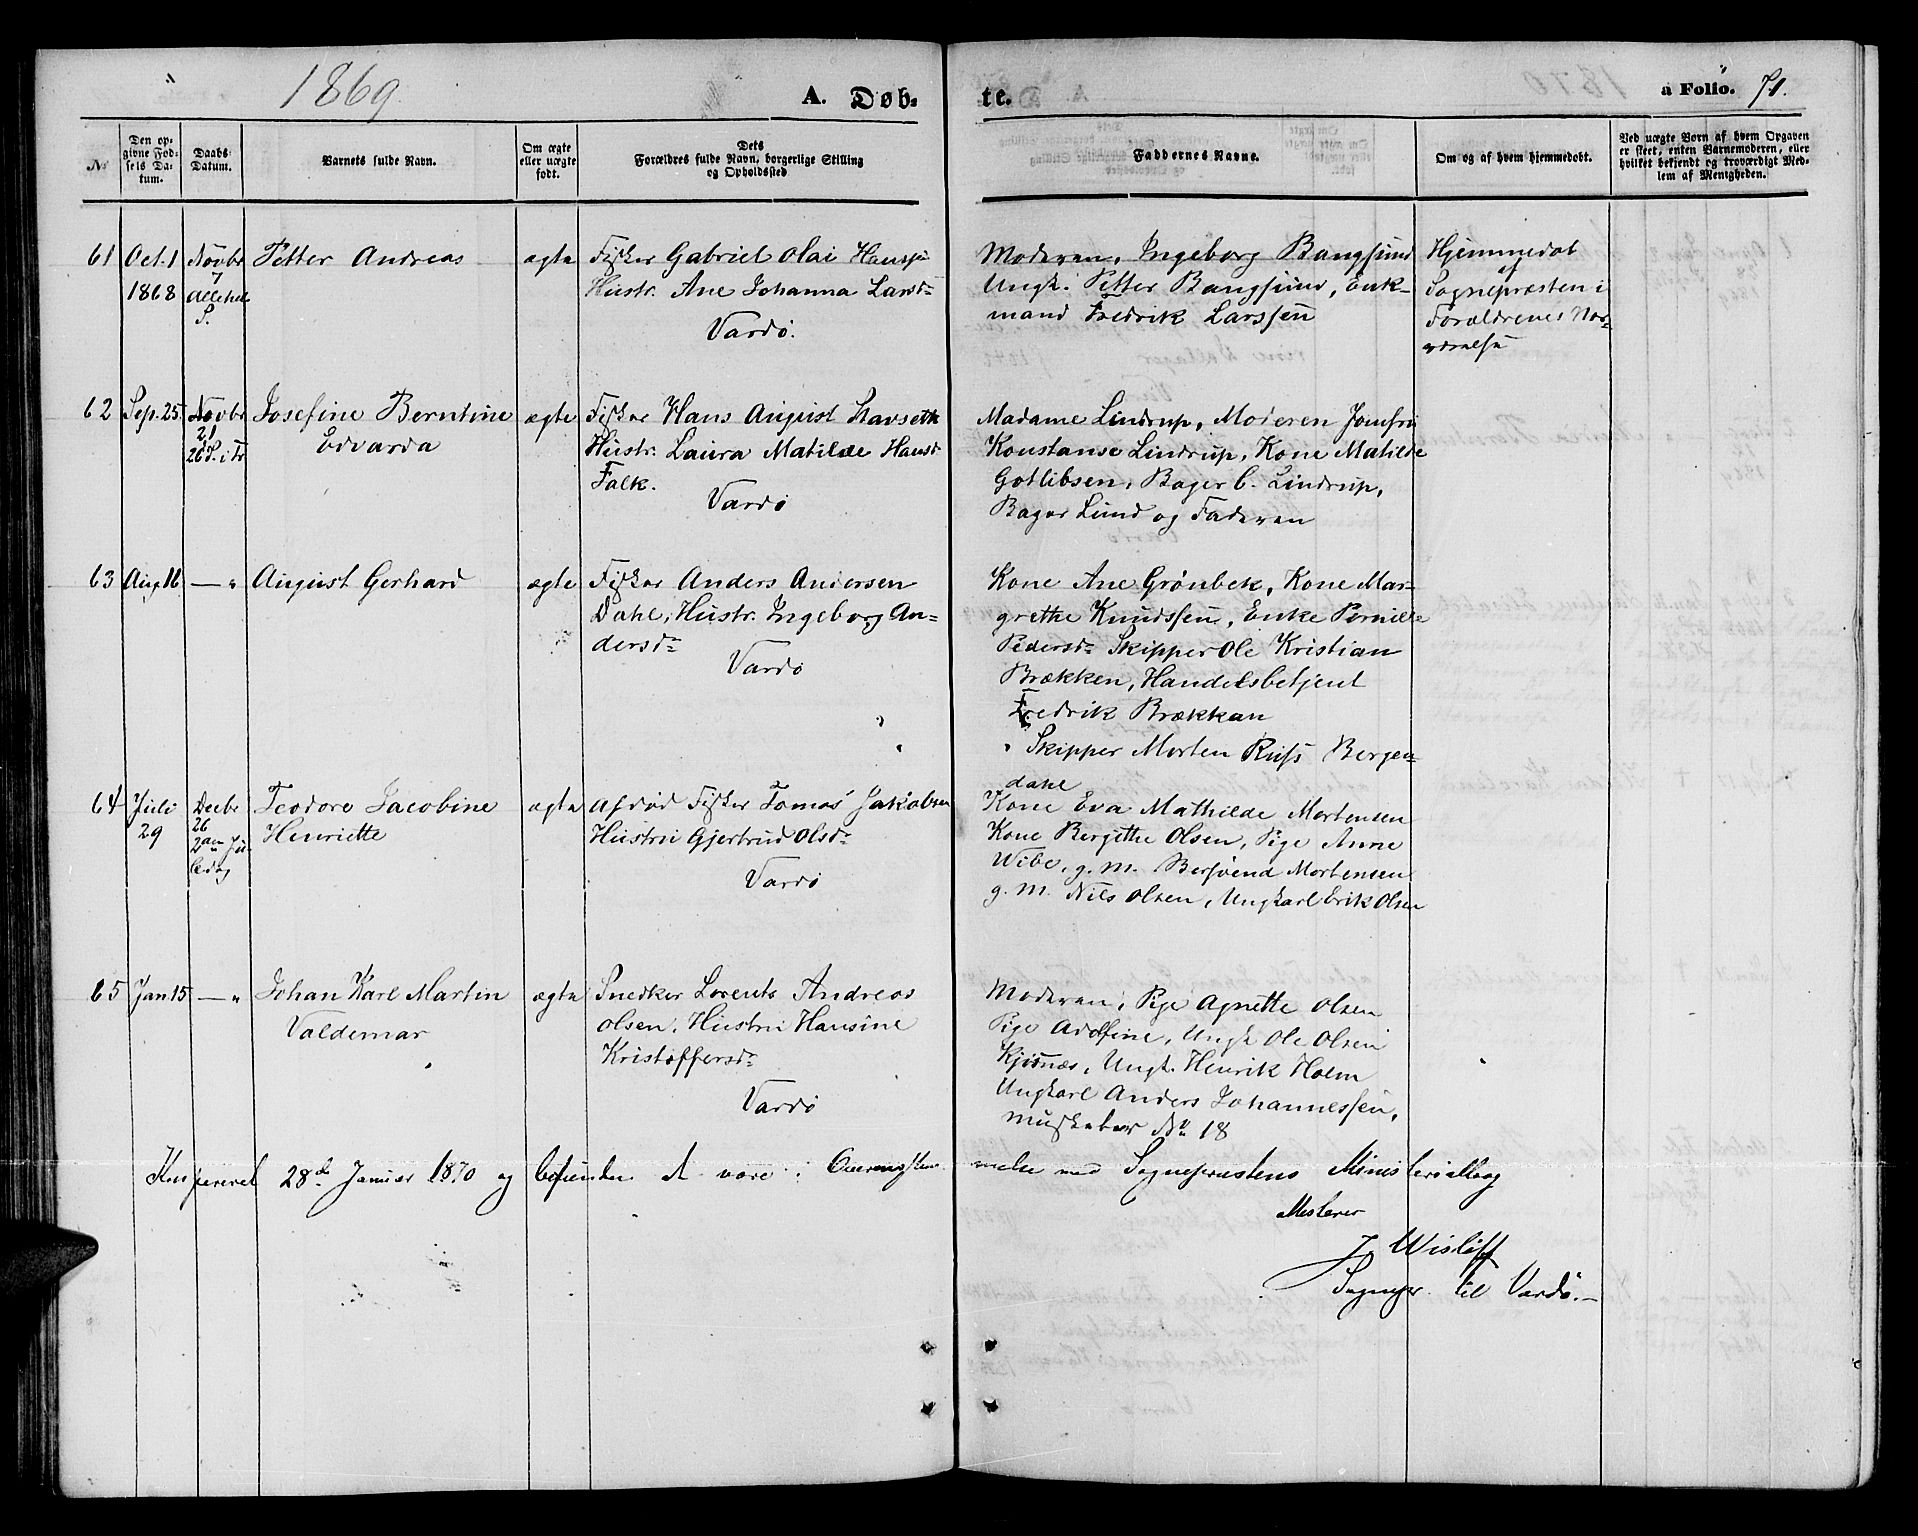 1869.
A. Døb-
te.
a Folio. 71.
No
Den opgivne Fødsels Datum.
Daabs Datum.
Barnets fulde Navn.
Om ægte eller uægte født.
Dets Forældres fulde Navn, borgerlige Stilling og Opholdssted
Faddernes Navne.
Om og af hvem hjemmedøbt.
Ved uægte Børn af hvem Opgaven er skeet, enten Barnemoderen, eller hvilket bekjendt og troværdigt Medlem af Menigheden.
61 Oct. 1 Novbr Petter Andreas ægte Fisker Gabriel Olai Hanssen
1868 7 Hustr. Ane Johanna Larsd.
Allehel. S.
Vardø.
Moderen, Ingeborg Bangsund
Ungk. Petter Bangsund, Enk-
mand Fredrik Larssen
Hjemmedøbt
af
Sognepræsten i
Forældrenes Nær-
værelse
62 Sep. 25 Novbr Josefine Berntine ægte Fisker Hans August Havseth
21 Edvarda Hustr. Laura Matilde Hansd.
26 S. i Tr. Falk.
Vardø
Madame Lindrup, Moderen Jomfru
Konstanse Lindrup, Kone Matilde
Gotlibsen, Bager C. Lindrup,
Bager Lund og Faderen
63 Aug. 16 — " August Gerhard ægte Fisker Anders Andersen
Dahl, Hustr. Ingeborg An-
dersd.
Vardø
Kone Ane Grønbek, Kone Mar-
grethe Knudssen, Enke Pernille
Pedersd. Skipper Ole Kristian
Brækken, Handelsbetjent
Fredrik Brækkan
Skipper Morten Russ Bergen-
dahl
64 Juli Decbr Teodore Jacobine ægte Afdød Fisker Tomas Jakobsen
29 26 Henriette Hustru Gjertrud Olsd.
2den Ju-
ledag
Vardø
Kone Eva Mathilde Mortensen
Kone Bergithe Olsen, Pige Anne
Wibe, g. M. Bersvend Mortensen
g. M. Nils Olsen, Ungkarl Erik Olsen
65 Jan 15 — " Johan Karl Martin ægte Snedker Lorents Andreas
Valdemar Olsen, Hustru Hansine
Kristoffersd.
Vardø
Moderen, Pige Agnette Olsen
Pige Adolfine, Ungk Ole Olsen
Kjøsnæs, Ungk. Henrik Holm
Ungkarl Anders Johannessen,
musketeer No 18
Konfereret 28de Januar 1870 og befunden at være i Overensstem-
melse med Sognepræstens Ministerialbog
Attesterer
J. Wisløff
Sognepr. til Vardø.—